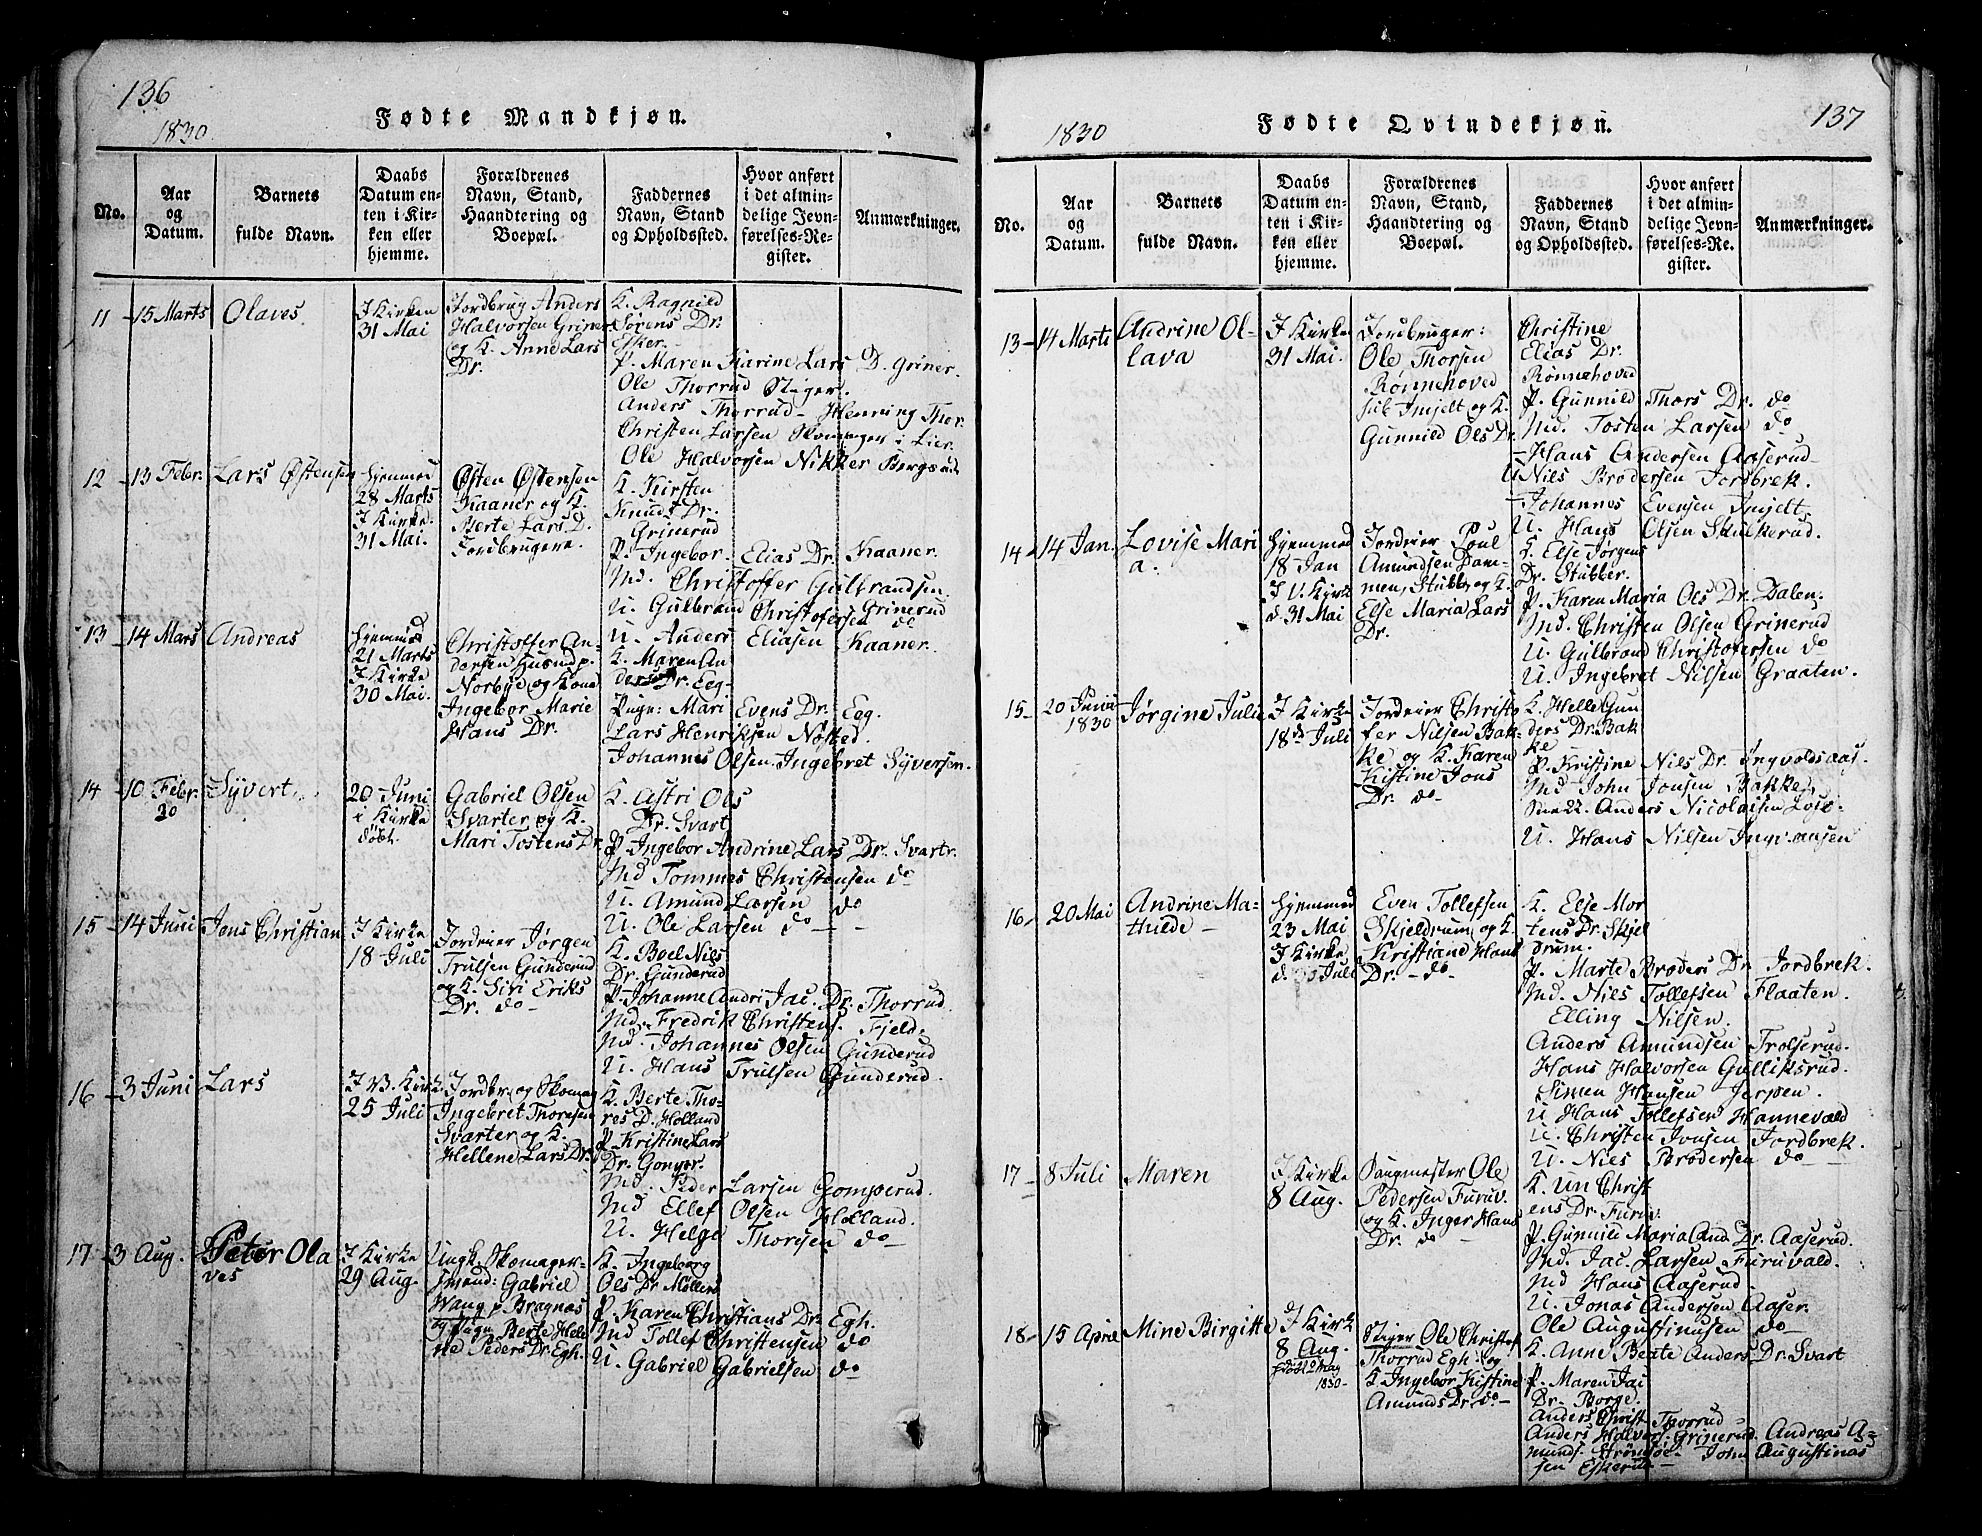 136
1830
Fødte Mandkjøn.
No.
Aar
og
Datum.
Barnets
fulde Navn.
Daabs
Datum en-
ten i Kir-
ken eller
hjemme.
Forældrenes
Navn, Stand,
Haandtering og
Boepæl.
Faddernes
Navn, Stand
og Opholdssted.
Hvor anført
i det almin-
delige Jevn-
førelses-Re-
gister.
Anmærkninger.
11
15 Marts
Olaves
I Kirken
31 Mai
Jordbrug Anders
Halvorsen Griner
og K. Anne Lars
Dr.
K. Ragnild
Sørens Dr.
Esker.
P. Maren Karine Lars D. Griner.
Ole Thorrud Stiger.
Anders Thorrud - Henning Thor.
Christen Larsen Skomager i Lier
Ole Halvorsen Nikker
12
13 Febr.
Lars Østensen
Hjemmed
28 Marts
I Kirke
31 Mai.
Østen Østensen
Kaaner og K.
Berte Lars D.
Jordbrugere.
K. Kirsten
Knuds Dr.
Grinerud
P. Ingebor Elias Dr. Kaaner.
Md. Christoffer Gulbrandsen
U. Gulbrand Christofersen Grinerud do
U. Anders Eliasen Kaaner.
13
14 Mars
Andreas
Hjemmed
21 Marts
I Kirke
30 Mai.
Christoffer An-
dersen Husmd p.
Norbye og Kone
Ingebor Marie
Hans Dr.
K. Maren An
ders Dr. Eeg.
Pige: Mari Evens Dr. Eeg.
Lars Henriksen Nøsted.
Johannes Olsen. Ingebret Syversen.
14
10 Febr.
30
Syvert
20 Juni
i Kirke
døbt.
Gabriel Olsen
Svarter og K.
Mari Tostens Dr.
K. Astri Ols
Dr. Svart
P. Ingebor Andrine Lars Dr. Svartr.
Md Tommes Christensen do
U. Amund Larsen do
U. Ole Larsen do
15
14 Juni
Jens Christian
I Kirke
18 Juli
Jordeier Jørgen
Trulsen Gunderud
og K. Siri Eriks
Dr. do
K. Boel Nils
Dr. Gunderud
P. Johanne Andri Jac. Dr. Thorrud.
Md. Fredrik Christens. Fjeld.
Md. Johannes Olsen Gunderud
U. Hans Trulsen Gunderud.
16
3 Juni
Lars
I V. Kirk.
25 Juli
Jordbr. og Skomag
Ingebret Thoresen
Svarter og K.
Hellene Lars Dr.
K. Berte Tho-
res D. Holland
P. Kristine Lars
Dr. Gomper.
Md. Peder Larsen Gomperud.
Md Ellef Olsen Holland.
U. Helge Thorsen do
17
3 Aug.
Peter Ola
ves
I Kirke
29 Aug.
Ungk. Skomager-
svend: Gabriel
Wang p. Bragnæs
og Pige Berte Hele
ne Peders Dr. Egh.
K. Ingeborg
Ols Dr Møllers
P. Karen Christians Dr. Egh.
Md Tollef Christensen do
U. Gabriel Gabrielsen do
137
1830
Fødte Qvindekjøn.
No.
Aar
og
Datum.
Barnets
fulde Navn.
Daabs
Datum en-
ten i Kir-
ken eller
hjemme.
Forældrenes
Navn, Stand,
Haandtering og
Boepæl.
Faddernes
Navn, Stand
og Opholdssted.
Hvor anført
i det almin-
delige Jevn-
førelses-Re-
gister.
Anmærkninger.
13
14 Marts
Andrine Ol-
lava
I Kirke
31 Mai.
Jordbruger:
Ole Thorsen
Rønnehoved
og K.
Gunnild Ols Dr.
Christine
Elias Dr.
Rønnehoved
P. Gunnild Thors Dr. do
Md. Tosten Larsen do
Hans Andersen Aaserud
U Nils Brodersen Jordbrek.
Johannes Evensen
U. Hans Olsen Skukerud.
14
14 Jan.
Lovise Mari
a.
Hjemmed
18 Jan
I V. Kirk
d. 31 Mai
Jordeier Poul
Amundsen Dam-
men, Stubb, og K.
Else Maria Lars
Dr.
K. Else Jørgens
Dr. Stubber.
P. Karen Maria Ols Dr. Dalen.
Md. Christen Olsen Grinerud
U. Gulbrand Christofersen do
U. Ingebret Nilsen Graaten.
15
20 Junii
1830
Jørgine Julie
I Kirke
18de Juli
Jordeier Christo
fer Nilsen Bak-
ke og K. Karen
Kistine Jons
Dr. do
K. Helle Gun
ders Dr. Bak
ke
P. Kristine Nils Dr. Ingvoldsaas.
Md John Jonsen Bakke,
Anders Nicolaisen
U. Hans Nilsen
16
20 Mai
Andrine Ma-
thilde
Hjemmed
23 Mai
I Kirke
d. 25 Juli
Even Tollefsen
Skjeldrum og K.
Kristiand Hans
Dr. do
K. Else Mor
tens Dr. Skjel
drum.
P. Marte Broders Dr Jordbrek.
Md. Nils Tollefsen Flaaten.
Elling Nilsen.
Anders Amundsen Trolserud.
Hans Halvorsen Gulliksrud.
Simen Hansen Jerpen.
U Hans Tollefsen Hannevald
U. Christen Jonsen Jordbrek.
U. Nils Brodersen do
17
8 Juli
Maren
I Kirke
8 Aug.
Saugmester Ole
Pedersen Furuv.
og K. Inger Hans
Dr. do
K. Un Christ
ens Dr. Furuv.
P. Gunnild Maria And. Dr. Aaserud.
Md. Jac. Larsen Furuvald.
Md Hans Aaserud.
U. Jonas Andersen Aaser.
Ole Augustinusen do
18
15 April
Mine Birgitte
I Kirk
8 Aug.
1830
Stiger Ole Christof
Thorrud Egh og
K. Ingebor Kistine
Amunds Dr. do
K. Anne Beate Anders Dr. Svart
P. Maren Jac
Dr. Borge
Anders Christ Thorrud
Anders Halvors. Grinerud. Andreas A-
munds. Strømsøe. John Augustinus
sen Eskerud